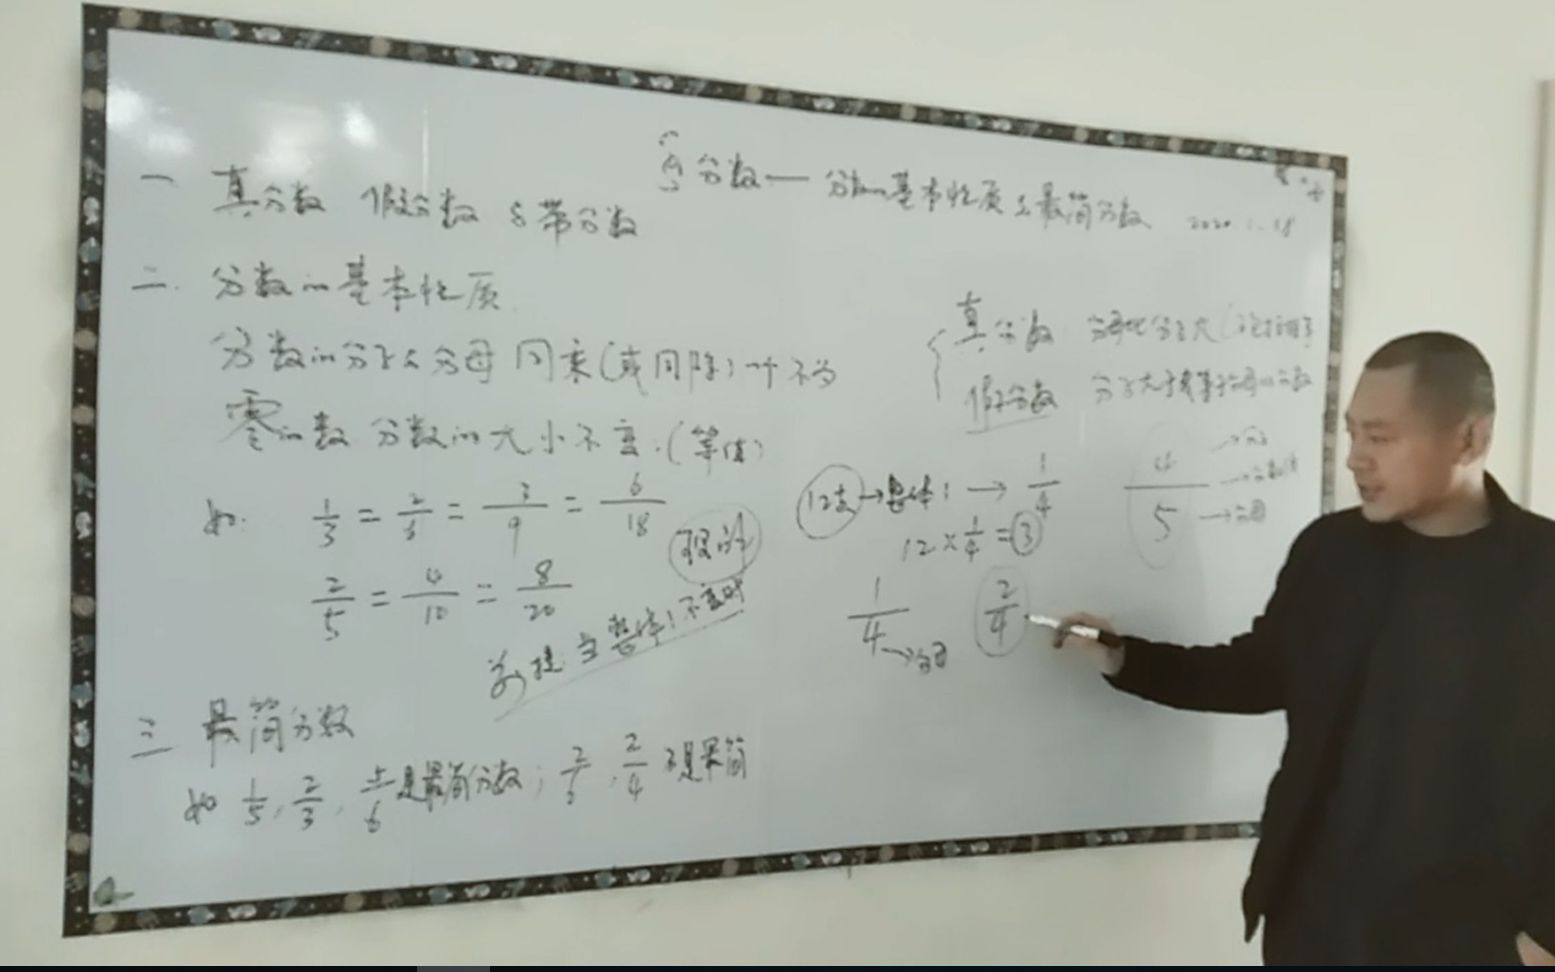 分数——分数的基本性质与最简分数 2020.1.18
一 真分数 假分数 与带分数
二. 分数的基本性质
分数的分子与分母同乘(或同除)一个不为
零的数 分数的大小不变.(等值)
如: 1/3 = 2/6 = 3/9 = 6/18
2/5 = 4/10 = 8/20
前提 当整体1不变时
三 最简分数
如 1/5, 2/3, 5/6 是最简分数; 2/4 不是最简
真分数 分母比分子大
假分数 分子大于或等于分母的分数
12支 → 整体1 → 1/4
12 × 1/4 = 3
4/5 → 分子 → 分数线 → 分母
1/4 → 分母 2/4